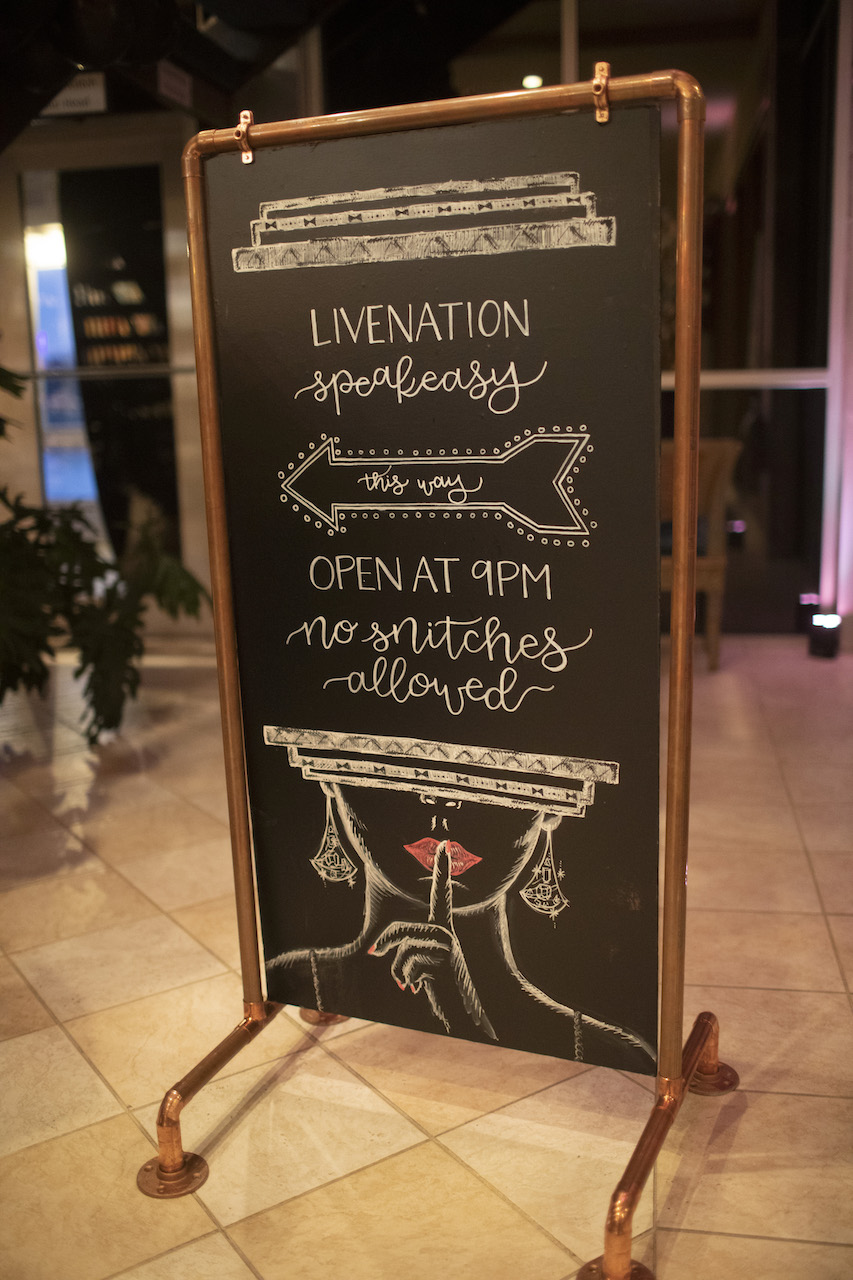 LIVENATION
speakeasy
this way
OPEN AT 9PM
no snitches
allowed